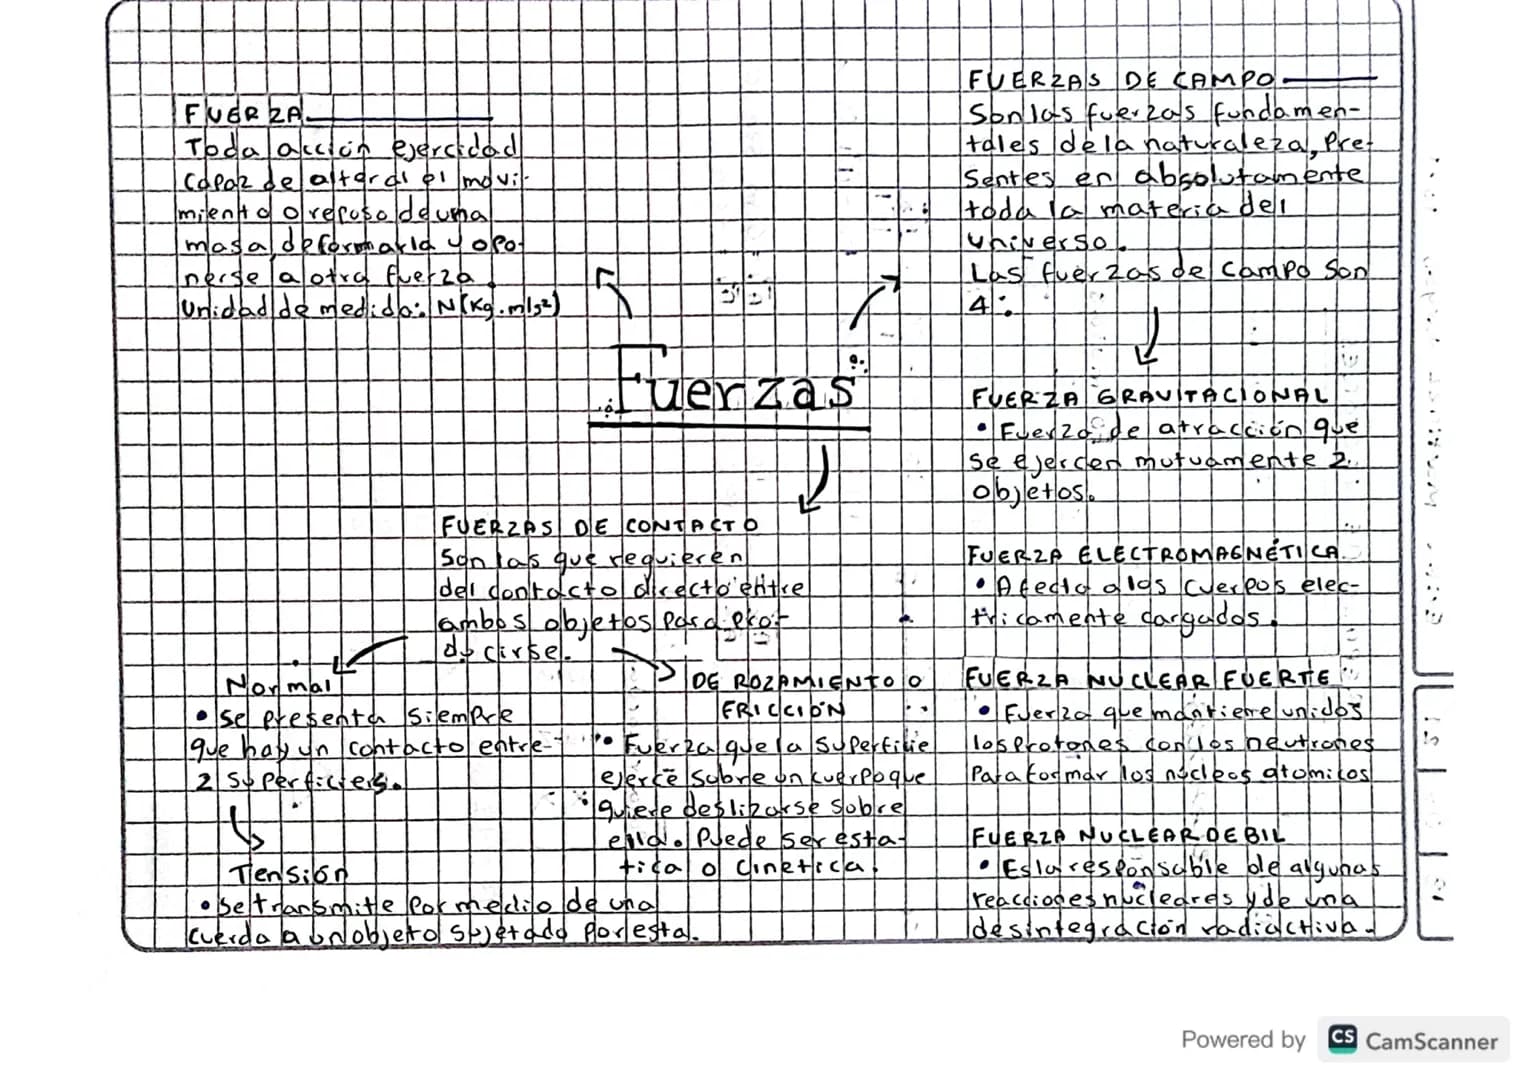 FUERZA
Toda acción ejercidad
capaz de altarar el movi-
miento o reposo de uma
masa, deformarla y opo-
nerse a otra fuerza
Unidad de medida: N(Kg.m/s²)
FUERZAS DE CAMPO
Son las fuerzas fundamen-
tales de la naturaleza, Pre-
sentes en absolutamente
toda la materia del
universo.
Las fuerzas de campo son
4:
Fuerzas
FUERZA GRAVITACIONAL
• Fuerza de atracción que
se ejercen mutuamente 2
objetos.
FUERZA ELECTROMAGNÉTICA
• Afecta a los cuerpos elec-
tricamente cargados.
FUERZA NUCLEAR FUERTE
• Fuerza que mantiene unidos
los protones con los neutrones
Para formar los núcleos atomicos
FUERZA NUCLEAR DEBIL
• Es la responsable de algunas
reacciones nucleares y de una
desintegración radiactiva.
FUERZAS DE CONTACTO
Son las que requieren
del contacto directo entre
ambos objetos para pro-
ducirse.
Normal
• Se presenta siempre
que hay un contacto entre
2 superficies.
Tensión
• Se transmite por medio de una
cuerda a un objeto sujetado por esta.
DE ROZAMIENTO O
FRICCIÓN
• Fuerza que la superficie
ejerce sobre un cuerpo que
quiere deslizarse sobre
ella. Puede ser esta-
tica o cinetica.
Powered by CS CamScanner